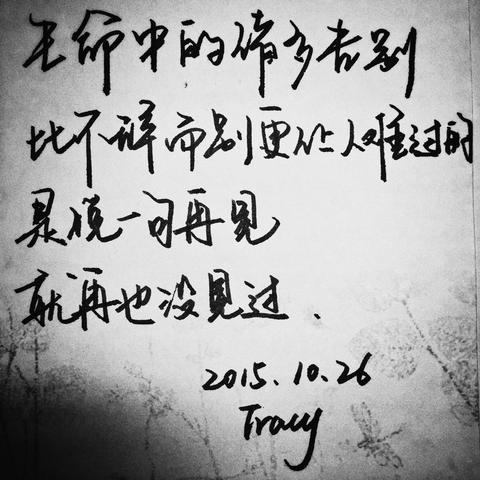 生命中的诸多告别
比不辞而别更让人难过的
是说一句再见
就再也没见过.
2015.10.26
Tracy